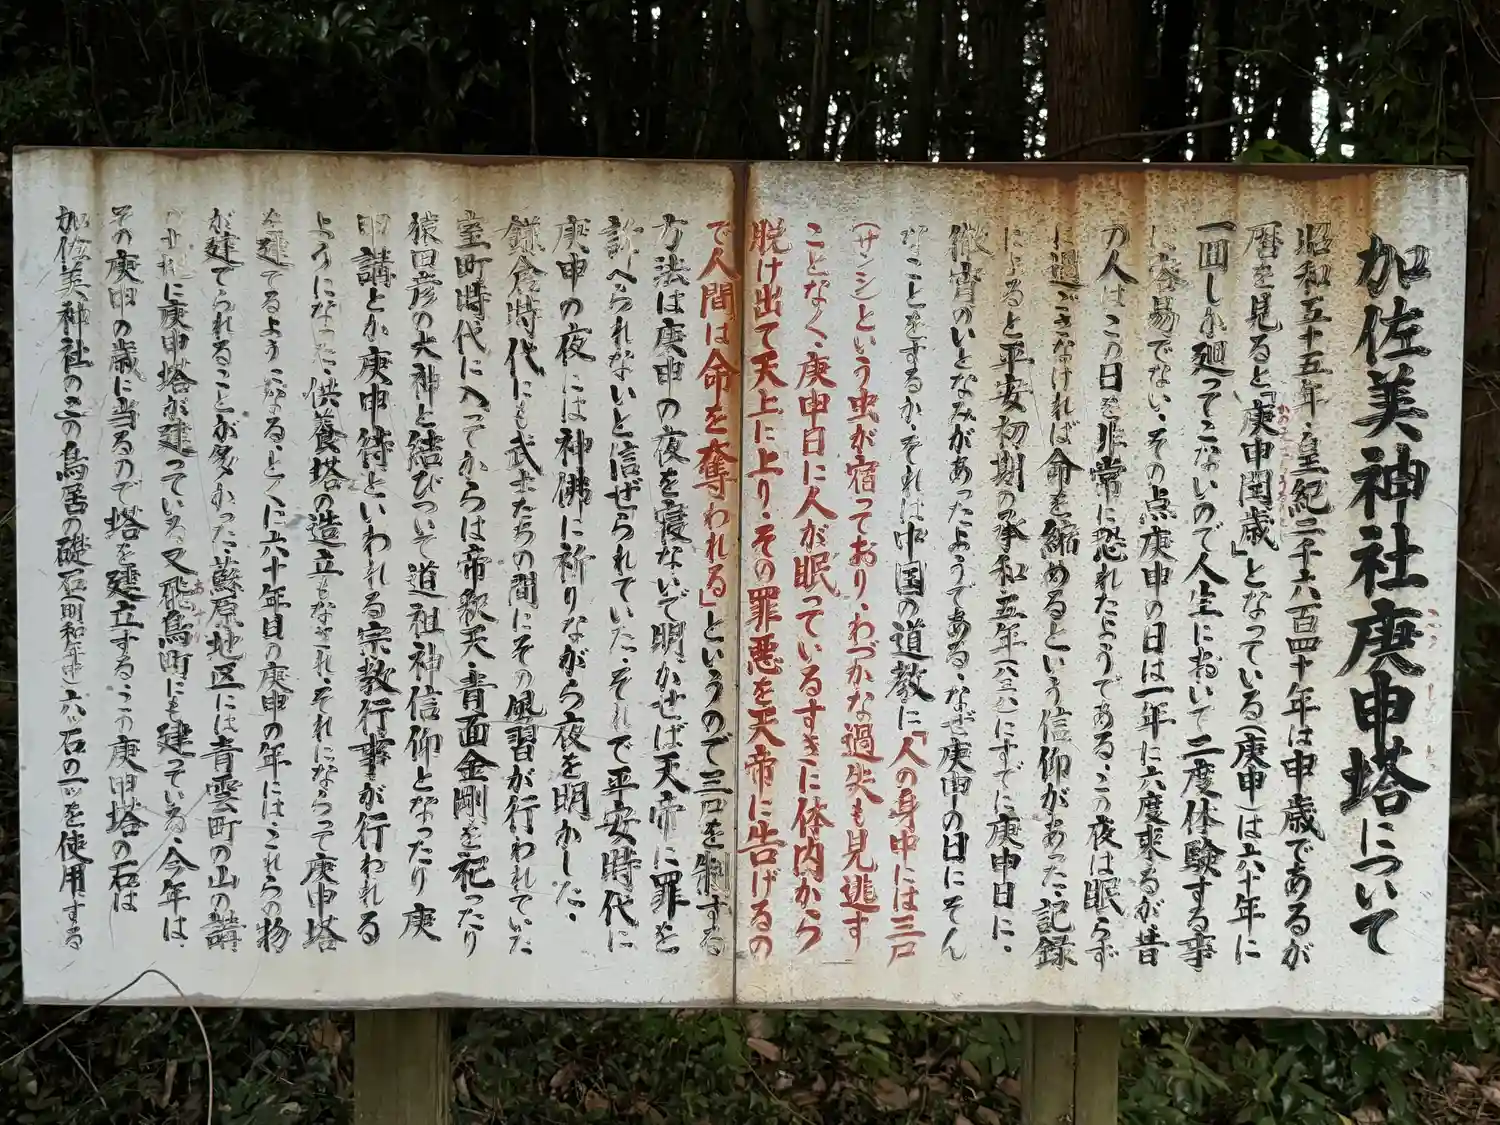 加佐美神社庚申塔について
昭和五十五年・皇紀二千六百四十年は申歳であるが
暦を見ると「庚申閏歳」となっている(庚申)は六十年に
一回しか廻ってこないので人生において二度体験する事
は容易でない・その点庚申の日は一年に六度来るが昔
の人はこの日を非常に恐れたようである・この夜は眠らず
に過ごさなければ命を縮めるという信仰があった・記録
によると平安初期の承和五年(八三八)にすでに庚申日に・
徹宵のいとなみがあったようである・なぜ庚申の日にそん
なことをするか・それは中国の道教に「人の身中には三尸
(サンシ)という虫が宿っており・わづかな過失も見逃す
ことなく・庚申日に人が眠っているすきに体内から
脱け出て天上に上り・その罪悪を天帝に告げるの
で人間は命を奪われる」というので三尸を制する
方法は庚申の夜を寝ないで明かせば天帝に罪を
訴へられないと信ぜられていた・それで平安時代に
庚申の夜には神佛に祈りながら夜を明かした・
鎌倉時代にも武士たちの間にその風習が行われていた
室町時代に入ってからは帝釈天・青面金剛を祀ったり
猿田彦の大神と結びついて道祖神信仰となったり 庚
申講とか庚申待といわれる宗教行事が行われる
ようになった・供養塔の造立もなされ・それにならって庚申塔
を建てるようになる・とくに六十年目の庚申の年には・これらの物
が建てられることが多かった・蘇原地区には青雲町の山の講
に庚申塔が建っている 又飛鳥町にも建っている・今年は・
その庚申の歳に当るので塔を建立する・この庚申塔の石は
加佐美神社の二の鳥居の礎石 六ッ石の一ッを使用する